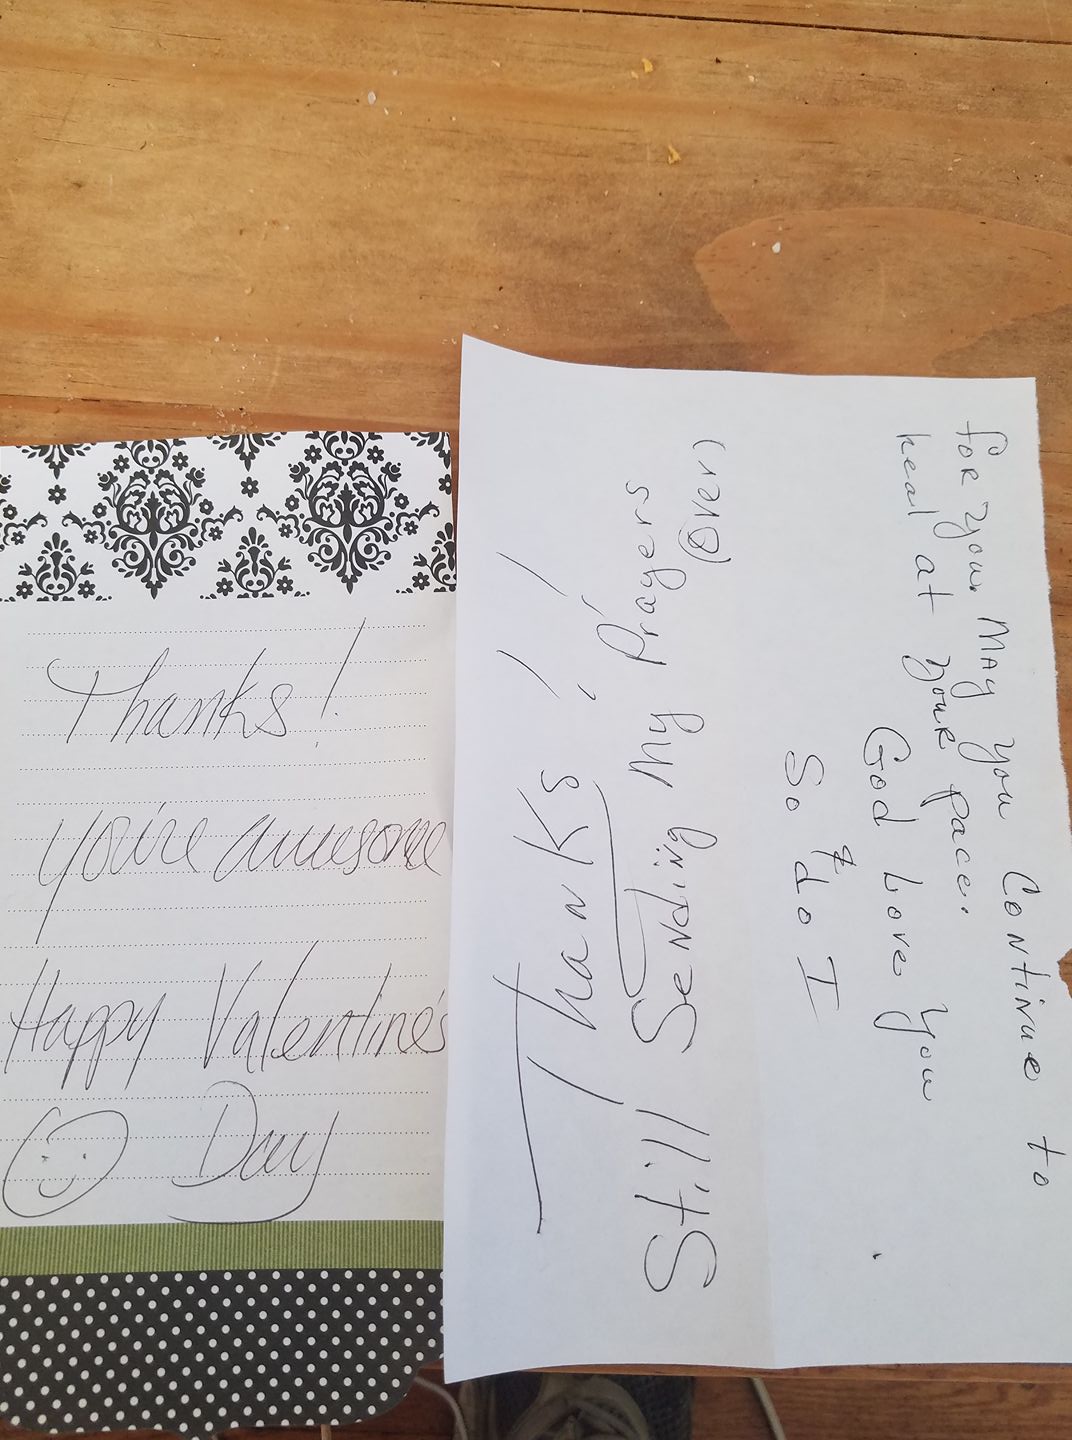 Thanks!
you're awesome
Happy Valentine's
Day
Thanks!!
Still Sending My Prayers
(Over)
for you. May you Continue to
heal at your pace.
God Love you
&
So do I